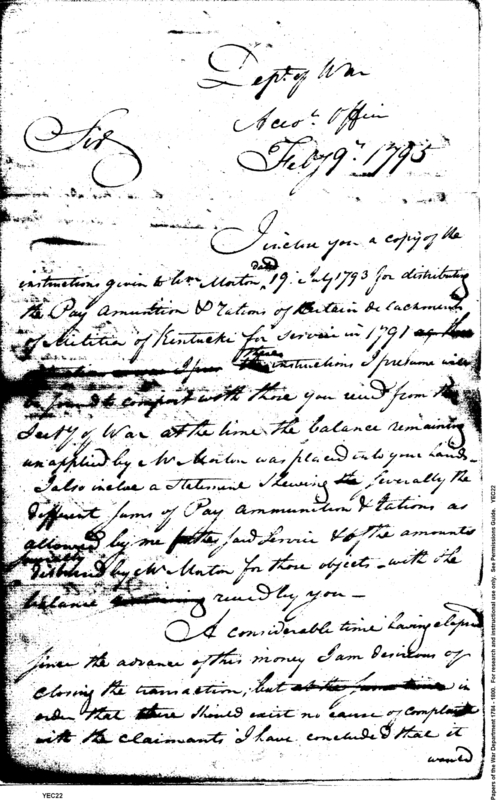 Dept. of War
Accot. Office
Sir
Feby 9th. 1795
I inclose you a copy of the
instructions given to Wm Morton dated 19. July 1793 for distributing
the Pay Amunition & Rations of certain detachments
of Militia of Kentucki for service in 1791
These instructions I presume will
be found to comport with those you recd from the
Secty of War at the time the balance remaining
unapplied by Mr Morton was placed into your hands
I also inclose a Statement Shewing severally the
different Sums of Pay ammunition & Rations as
allowed by me for the said Service & of the amounts
disbursed by Mr Morton for those objects - with the
balance recd by you -
A considerable time having elapsed
since the advance of this money I am desirous of
closing the transaction, but in
order that there should exist no cause of complaint
with the claimants I have concluded that it
would
YEC22
Papers of the War Department 1784 - 1800. For research and instructional use only. See Permissions Guide. YEC22